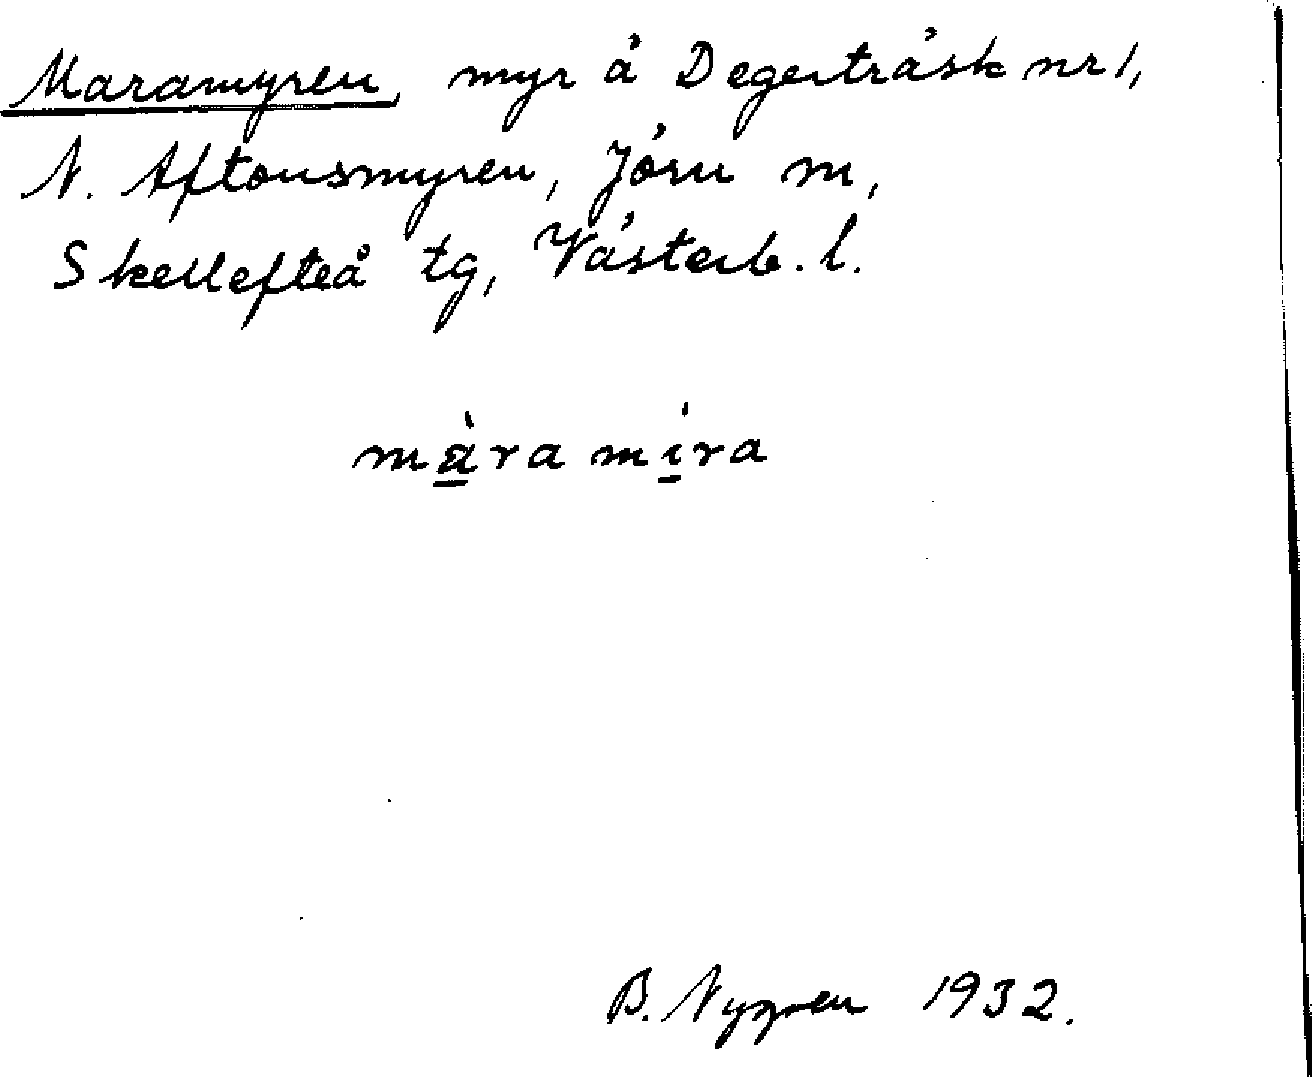 Maramyren, myr å Degerträsk nr 1,
N. Aftonsmyren, Jörn sn,
Skellefteå tg, Västerb. l.
màra míra
B. Nygren 1932.